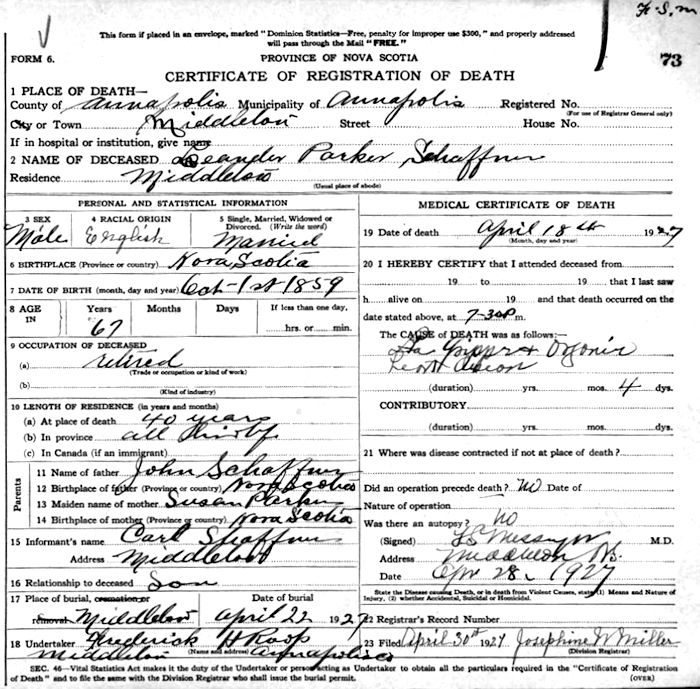 F.S.M
This form if placed in an envelope, marked "Dominion Statistics—Free, penalty for improper use $300," and properly addressed
will pass through the Mail "FREE."
FORM 6.
PROVINCE OF NOVA SCOTIA
73
CERTIFICATE OF REGISTRATION OF DEATH
1 PLACE OF DEATH—
County of Annapolis Municipality of Annapolis Registered No.
(For use of Registrar General only)
City or Town Middleton Street House No.
If in hospital or institution, give name
2 NAME OF DECEASED Leander Parker Schaffner
Residence Middleton
(Usual place of abode)
PERSONAL AND STATISTICAL INFORMATION
3 SEX
Male
4 RACIAL ORIGIN
English
5 Single, Married, Widowed or
Divorced. (Write the word)
Married
6 BIRTHPLACE (Province or country) Nova Scotia
7 DATE OF BIRTH (month, day and year) Oct-1st 1859
8 AGE
IN
Years
67
Months
Days
If less than one day,
hrs. or min.
9 OCCUPATION OF DECEASED
(a) retired
(Trade or occupation or kind of work)
(b)
(Kind of industry)
10 LENGTH OF RESIDENCE (in years and months)
(a) At place of death 40 years
(b) In province all
(c) In Canada (if an immigrant)
Parents
11 Name of father John Schaffner
12 Birthplace of father (Province or country) Nova Scotia
13 Maiden name of mother Susan Parker
14 Birthplace of mother (Province or country) Nova Scotia
15 Informant's name Carl Shaffner
Address Middleton
16 Relationship to deceased Son
17 Place of burial, cremation or
removal Middleton
Date of burial
April 22 1927
18 Undertaker Frederick H Roop
(Name and address)
Middleton Annapolis Co
MEDICAL CERTIFICATE OF DEATH
19 Date of death April 18th 1927
(Month, day and year)
20 I HEREBY CERTIFY that I attended deceased from
19 to 19 that I last saw
h alive on 19 and that death occurred on the
date stated above, at 7-30P m.
The CAUSE of DEATH was as follows:—
La Grippe & Organic
(duration) yrs. mos. 4 dys.
CONTRIBUTORY
(duration) yrs. mos. dys.
21 Where was disease contracted if not at place of death?
Did an operation precede death? no Date of
Nature of operation
Was there an autopsy? no
(Signed) M.D.
Address Middleton N.S.
Date Apr 28, 1927
State the Disease causing Death, or in death from Violent Causes, state (1) Means and Nature of
Injury, (2) whether Accidental, Suicidal or Homicidal.
22 Registrar's Record Number
23 Filed April 30th 1927 Josephine W Miller
(Division Registrar)
SEC. 46—Vital Statistics Act makes it the duty of the Undertaker or person acting as Undertaker to obtain all the particulars required in the "Certificate of Registration of
Death" and to file the same with the Division Registrar who shall issue the burial permit.
(OVER)